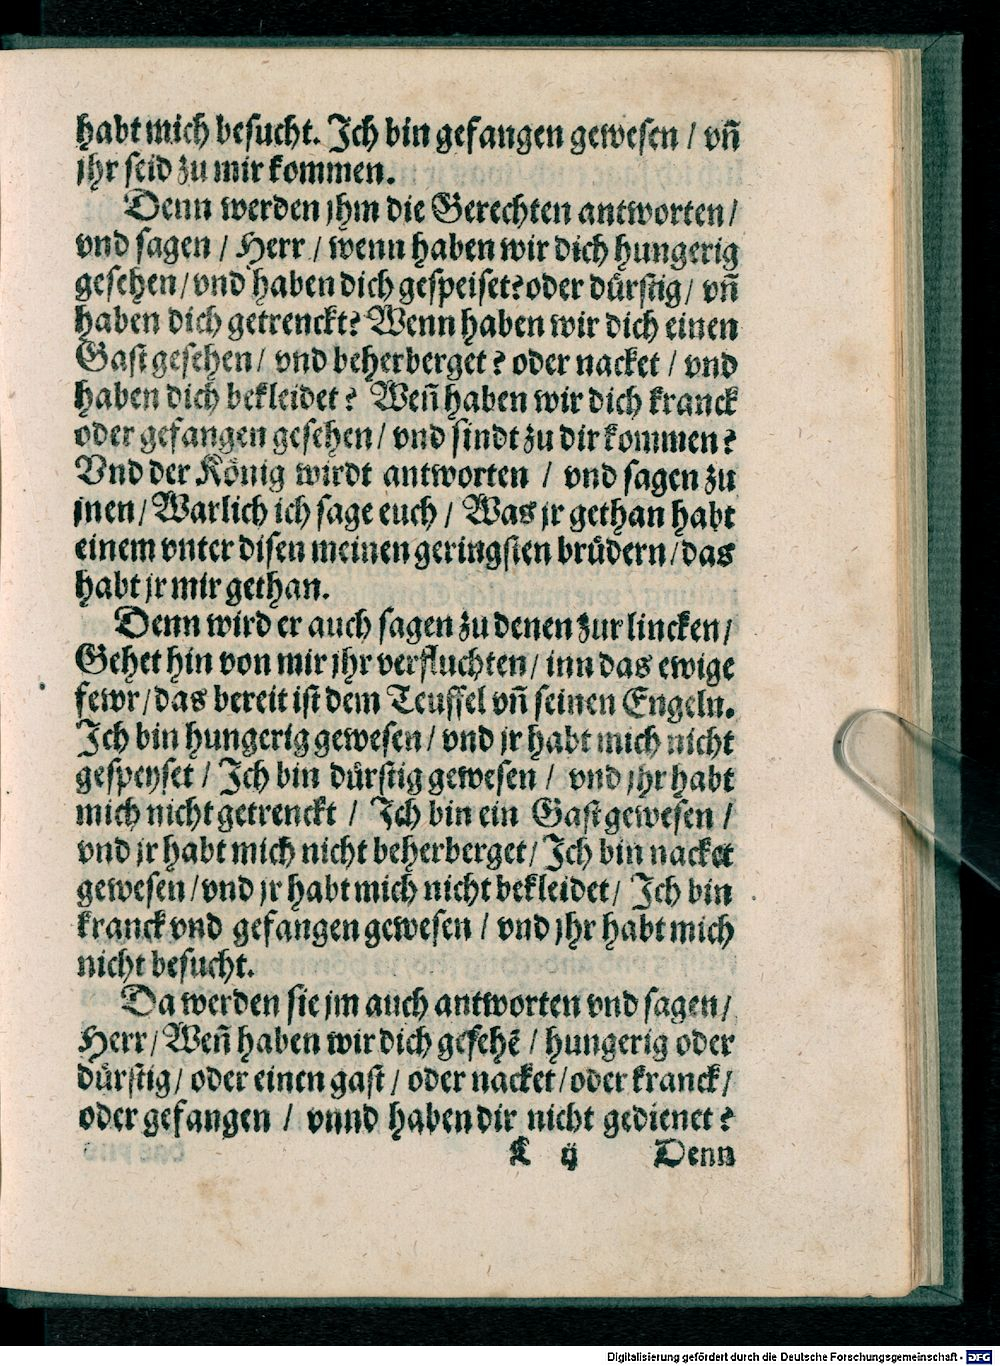 habt mich besucht. Ich bin gefangen gewesen / vñ
jhr seid zu mir kommen.
Denn werden jhm die Gerechten antworten /
vnd sagen / Herr / wenn haben wir dich hungerig
gesehen / vnd haben dich gespeiset? oder dürstig / vñ
haben dich getrenckt? Wenn haben wir dich einen
Gast gesehen / vnd beherberget? oder nacket / vnd
haben dich bekleidet? Weñ haben wir dich kranck
oder gefangen gesehen / vnd sindt zu dir kommen?
Vnd der König wirdt antworten / vnd sagen zu
jnen / Warlich ich sage euch / Was jr gethan habt
einem vnter disen meinen geringsten brüdern / das
habt jr mir gethan.
Denn wird er auch sagen zu denen zur lincken /
Gehet hin von mir jhr verfluchten / inn das ewige
fewr / das bereit ist dem Teuffel vñ seinen Engeln.
Ich bin hungerig gewesen / vnd jr habt mich nicht
gespeyset / Ich bin dürstig gewesen / vnd jhr habt
mich nicht getrenckt / Ich bin ein Gast gewesen /
vnd jr habt mich nicht beherberget / Ich bin nacket
gewesen / vnd jr habt mich nicht bekleidet / Ich bin
kranck vnd gefangen gewesen / vnd jhr habt mich
nicht besucht.
Da werden sie jm auch antworten vnd sagen /
Herr / Weñ haben wir dich gesehẽ / hungerig oder
dürstig / oder einen gast / oder nacket / oder kranck /
oder gefangen / vnnd haben dir nicht gedienet?
K ij Denn
Digitalisierung gefördert durch die Deutsche Forschungsgemeinschaft - DFG